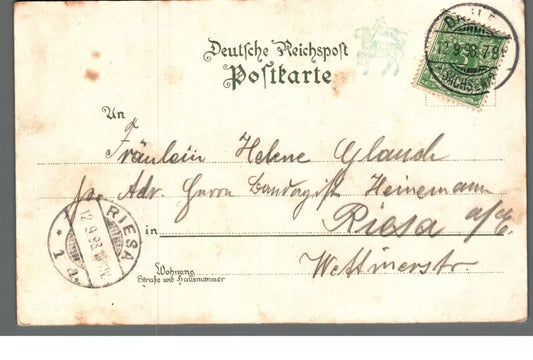 Deutsche Reichspost
Postkarte
12.9.98.7-8
(SACHSEN)
An
Fräulein Helene Glauch
pr. Adr. Herrn Bandagist Heinemann
in Riesa a/E.
Wettinerstr.
RIESA
12.9.98
Wohnung
Straße und Hausnummer